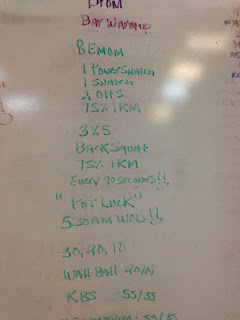 BAR WARMUP
8 EMOM
1 POWERSNATCH
1 SNATCH
2 OHS
75% 1RM
3X5
BACK SQUAT
75% 1RM
EVERY 90 SECONDS!!
"POT LUCK"
5:30AM WOD!!
30, 20, 10
WALL BALL 20/14
KBS 55/35
55/35